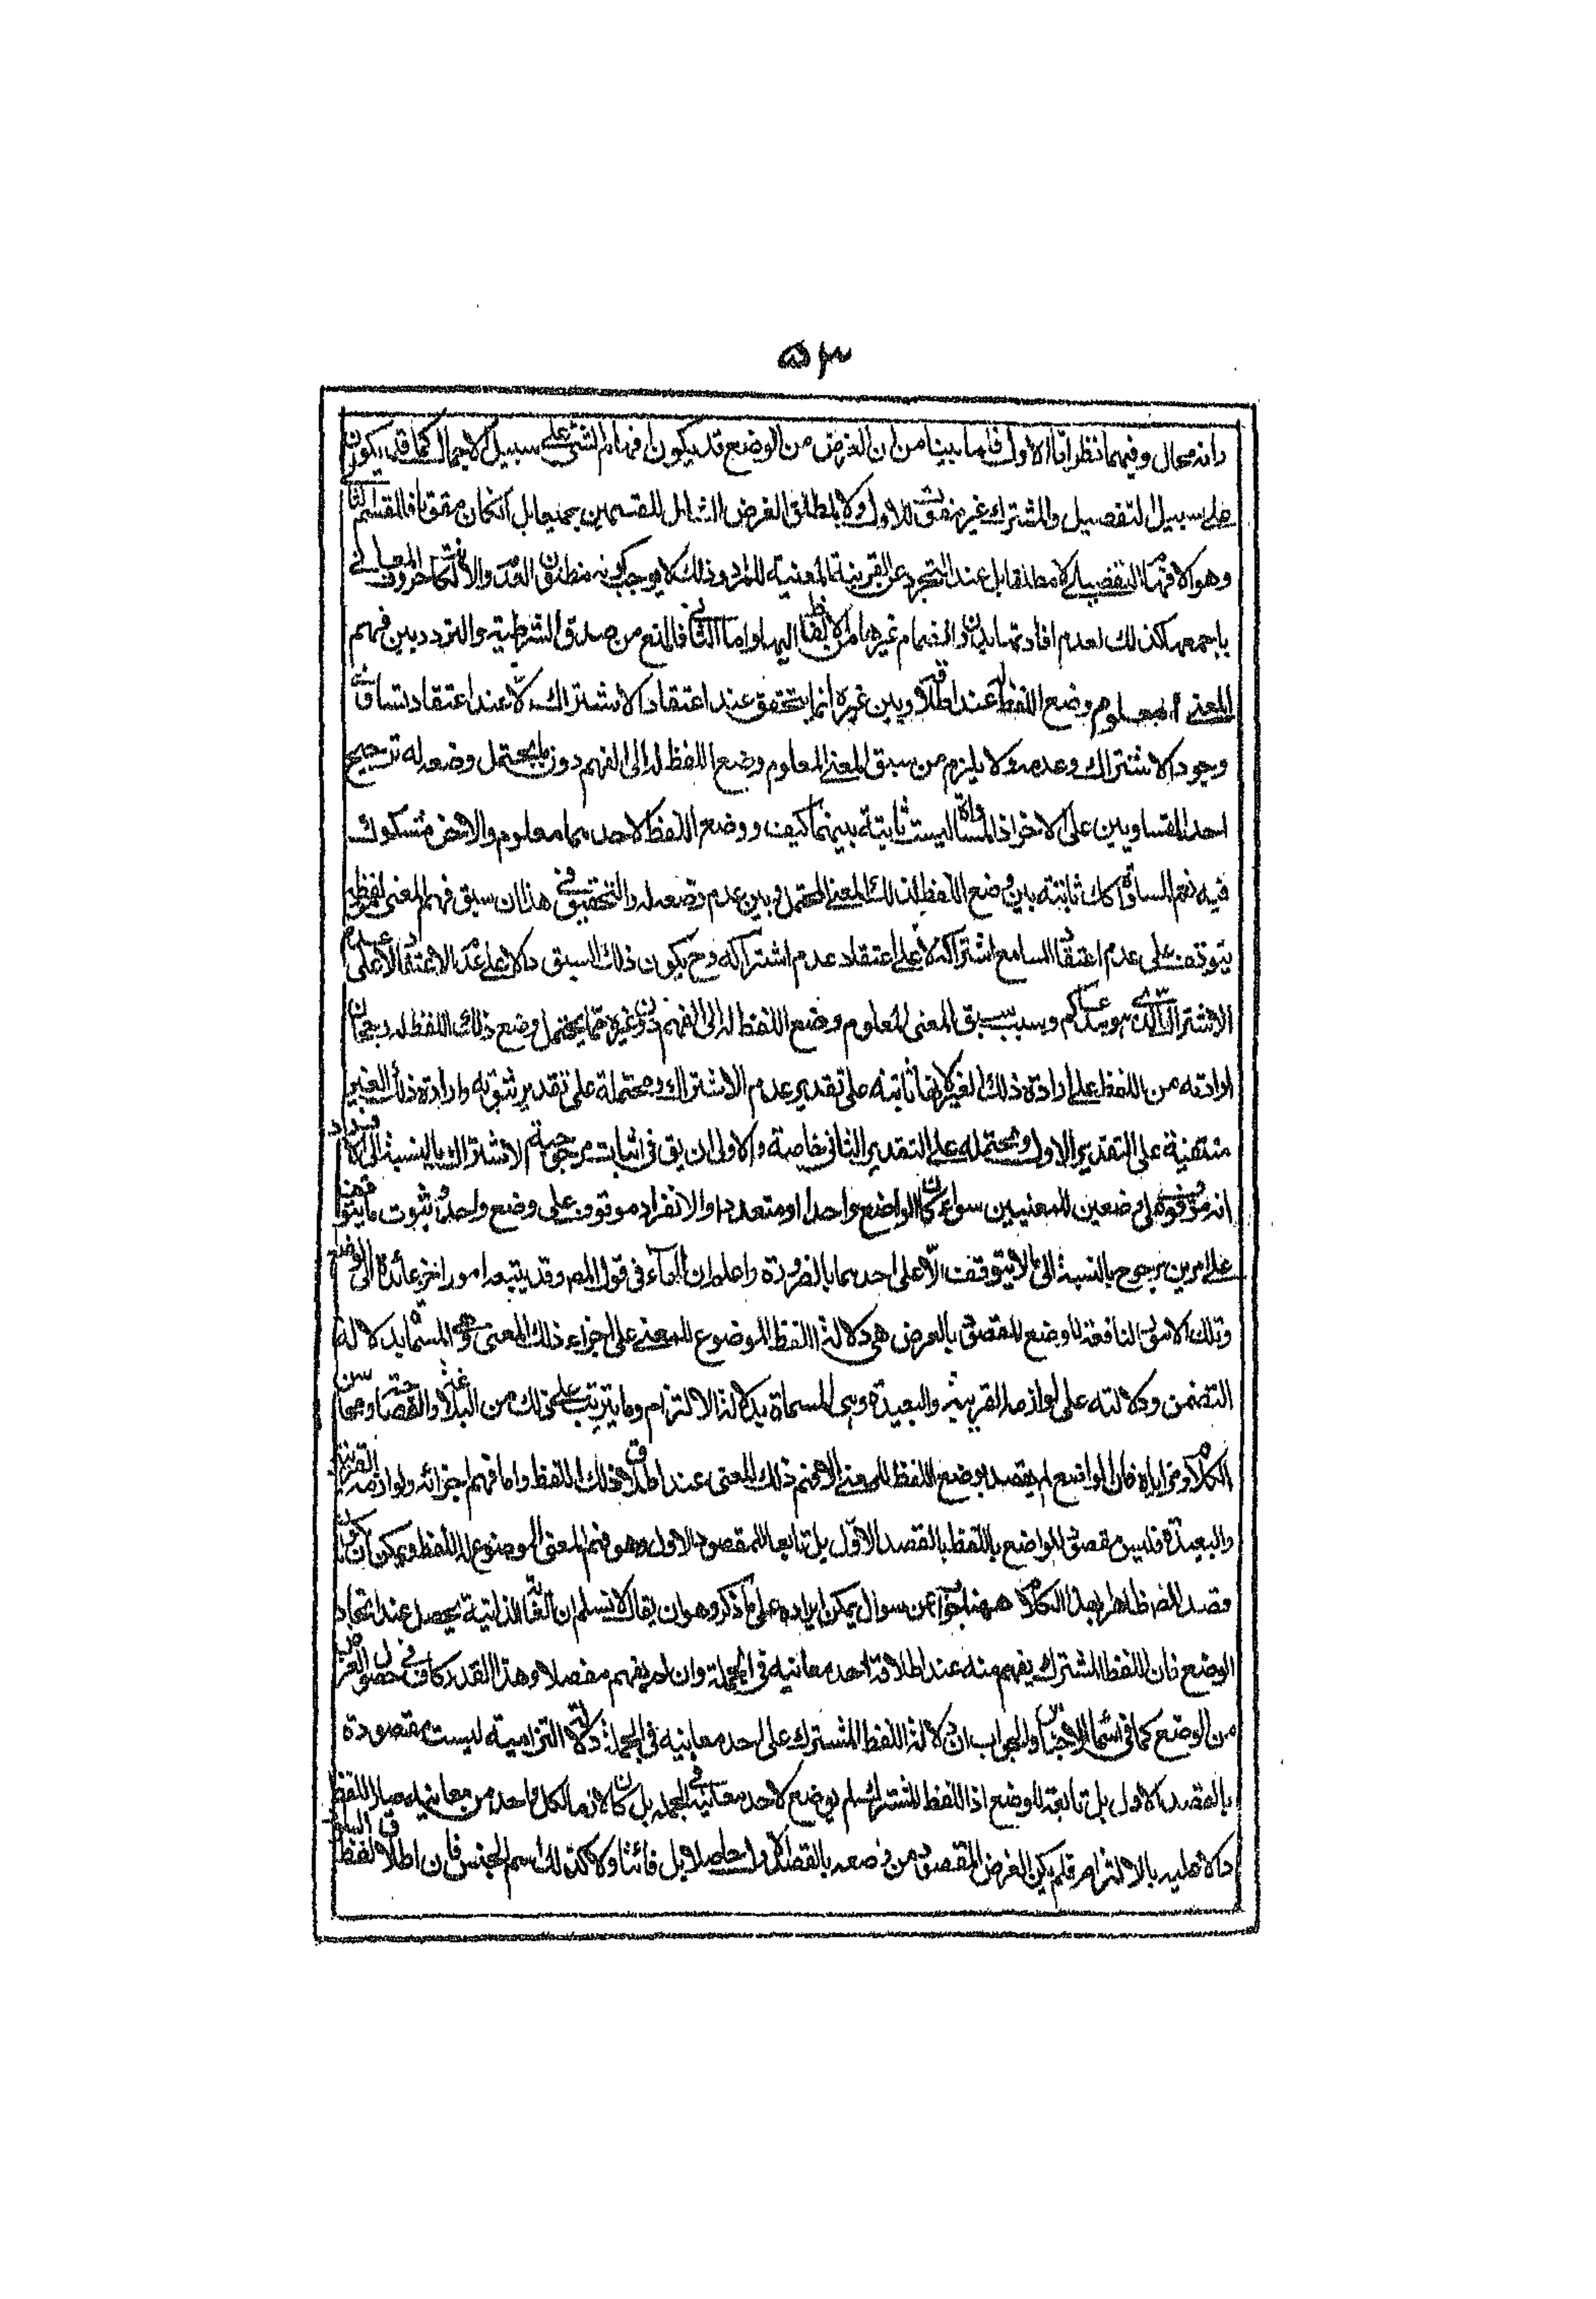 ٥٣
وانه محال وفيهما نظر اما الاول فلما بينا من ان الغرض من الوضع قد يكون افهام الشئ على سبيل الاجمال كما قد يكون
على سبيل التفصيل والمشترك غير مفوت للاول ولا لمطلق الغرض الشامل للقسمين جميعا بل انكان مفوتا فللقسم الثانى
وهو الافهام التفصيلى لا مطلقا بل عند التجرد عن القرينة المعينة للمراد وذلك لا يوجب كونه منطنة العدم والا لكانت حروف المعانى
باجمعها كذلك لعدم افادتها بدون انضمام غيرها من الالفاظ اليها واما الثانى فالمنع من صدق الشرطية والتردد بين فهم
المعنى المعلوم وضع اللفظ له عند اطلاقه وبين غيره انما يتحقق عند اعتقاد الاشتراك لا عند اعتقاد تساوى
وجود الاشتراك وعدمه ولا يلزم من سبق المعنى المعلوم وضع اللفظ له الى الفهم دون ما يحتمل وضعه له ترجيح
احد المتساويين على الاخر اذ المساواة ليست ثابتة بينهما كيف ووضع اللفظ لاحدهما معلوم والاخر مشكوك
فيه نعم المساواة كانت ثابتة بين وضع اللفظ لذلك المعنى المحتمل وبين عدم وضعه له والتحقيق فى هذا ان سبق فهم المعنى لفظه
يتوقف على عدم اعتقاد السامع اشتراكه لا على اعتقاد عدم اشتراكه وح يكون ذلك السبق دالا على عدم الاعتقاد لا على عدم
الاشتراك الذى هو مدعاكم وسبب سبق المعنى المعلوم وضع اللفظ له الى الفهم دون غيره مما يحتمل وضع ذلك اللفظ له رجحان
ارادته من اللفظ على ارادة ذلك الغير لانها ثابتة على تقدير عدم الاشتراك ومحتملة على تقدير ثبوته وارادة ذلك الغير
منتفية على التقدير الاول ومحتملة على التقدير الثانى خاصة والاولى ان يق فى اثبات مرجوحية الاشتراك بالنسبة الى الانفراد
انه موقوف على وضعين للمعنيين سواء كان الواضع واحدا او متعددا والانفراد موقوف على وضع واحد وثبوت ما يتوقف
على امرين مرجوح بالنسبة الى ما لا يتوقف الا على احدهما بالضرورة واعلم ان الهاء فى قول المصـ وقد يتبعه امور اخر عائدة الى الوضع
وتلك الامور النافعة للوضع المقصود بالعرض هى دلالة اللفظ الموضوع للمعنى على اجزاء ذلك المعنى وهى المسماة بدلالة
التضمن ودلالته على لوازمه القريبة والبعيدة وهى المسماة بدلالة الالتزام وما يترتب على ذلك من البلاغة والفصاحة ومحاسن
الكلام ومزاياه فان الواضع لم يقصد بوضع اللفظ للمعنى الا فهم ذلك المعنى عند اطلاق ذلك اللفظ واما فهم اجزائه ولوازمه القريبة
والبعيدة فليس مقصود الواضع باللفظ بالقصد الاول بل تابعا للمقصود الاول وهو فهم المعنى الموضوع له اللفظ ويمكن ان يكون
قصد المصـ ظ بهذا الكلام ههنا جوابا عن سوال يمكن ايراده على ما ذكر وهو ان يقال لا نسلم ان الفائدة الذاتية تحصل عند اتحاد
الوضع فان اللفظ المشترك يفهم منه عند اطلاقه احد معانيه فى الجملة وان لم يفهم مفصلا وهذا القدر كاف فى حصول الغرض
من الوضع كما فى اسماء الاجناس والجواب ان دلالة اللفظ المشترك على احد معانيه فى الجملة دلالة التزامية ليست مقصودة
بالقصد الاول بل تابعة للوضع اذ اللفظ المشترك لم يوضع لاحد معانيه فى الجملة بل كان لازما لكل واحد من معانيه صار اللفظ
دالا عليه بالالتزام فلم يكن الغرض المقصود من وضعه بالقصد الاول حاصلا بل فائتا ولا كذلك اسم الجنس فان اطلاق لفظ